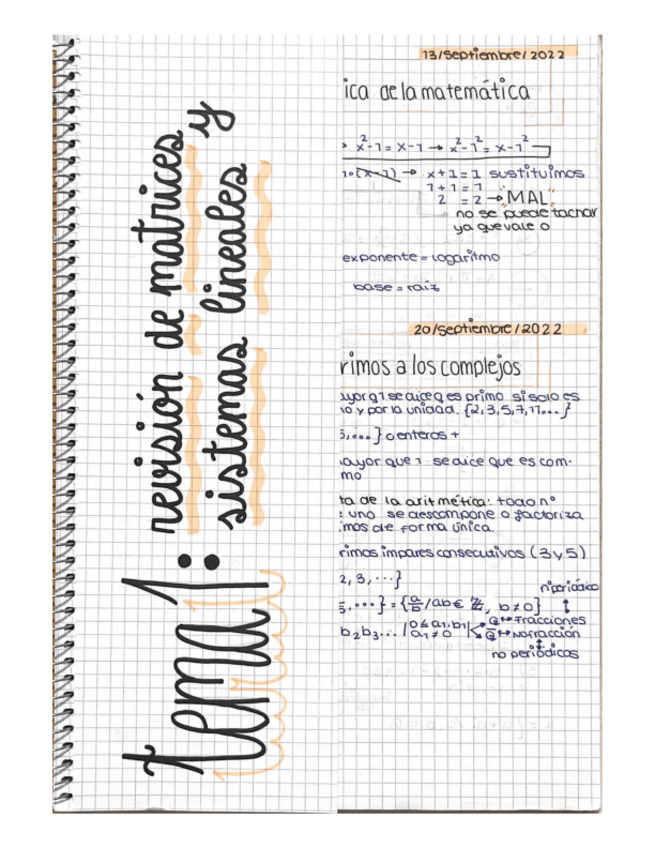 tema 1: revisión de matrices y
sistemas lineales
13/septiembre/2022
ica de la matemática
x²-1 = x-1 → x²-1² = x-1²
(x-1) → x+1=1 sustituimos
1+1=1
2 =2 → "MAL"
no se puede tachar
ya que vale 0
exponente = logaritmo
base = raíz
20/septiembre/2022
rimos a los complejos
ayor q 1 se dice q es primo si solo es
io y por la unidad. {2,3,5,7,11...}
5,...} o enteros +
ayor que 1 se dice que es com-
mo
ta de la aritmética: todo nº
uno se descompone o factoriza
imos de forma única
rimos impares consecutivos (3 y 5)
2, 3, ...}
nºperiódico
5,...} = {a/b / a b ∈ ℤ, b ≠ 0}
Q ↔ Fracciones
b₂b₃... / a₁ ≠ 0
Q ↔ No fracción
no periódicos